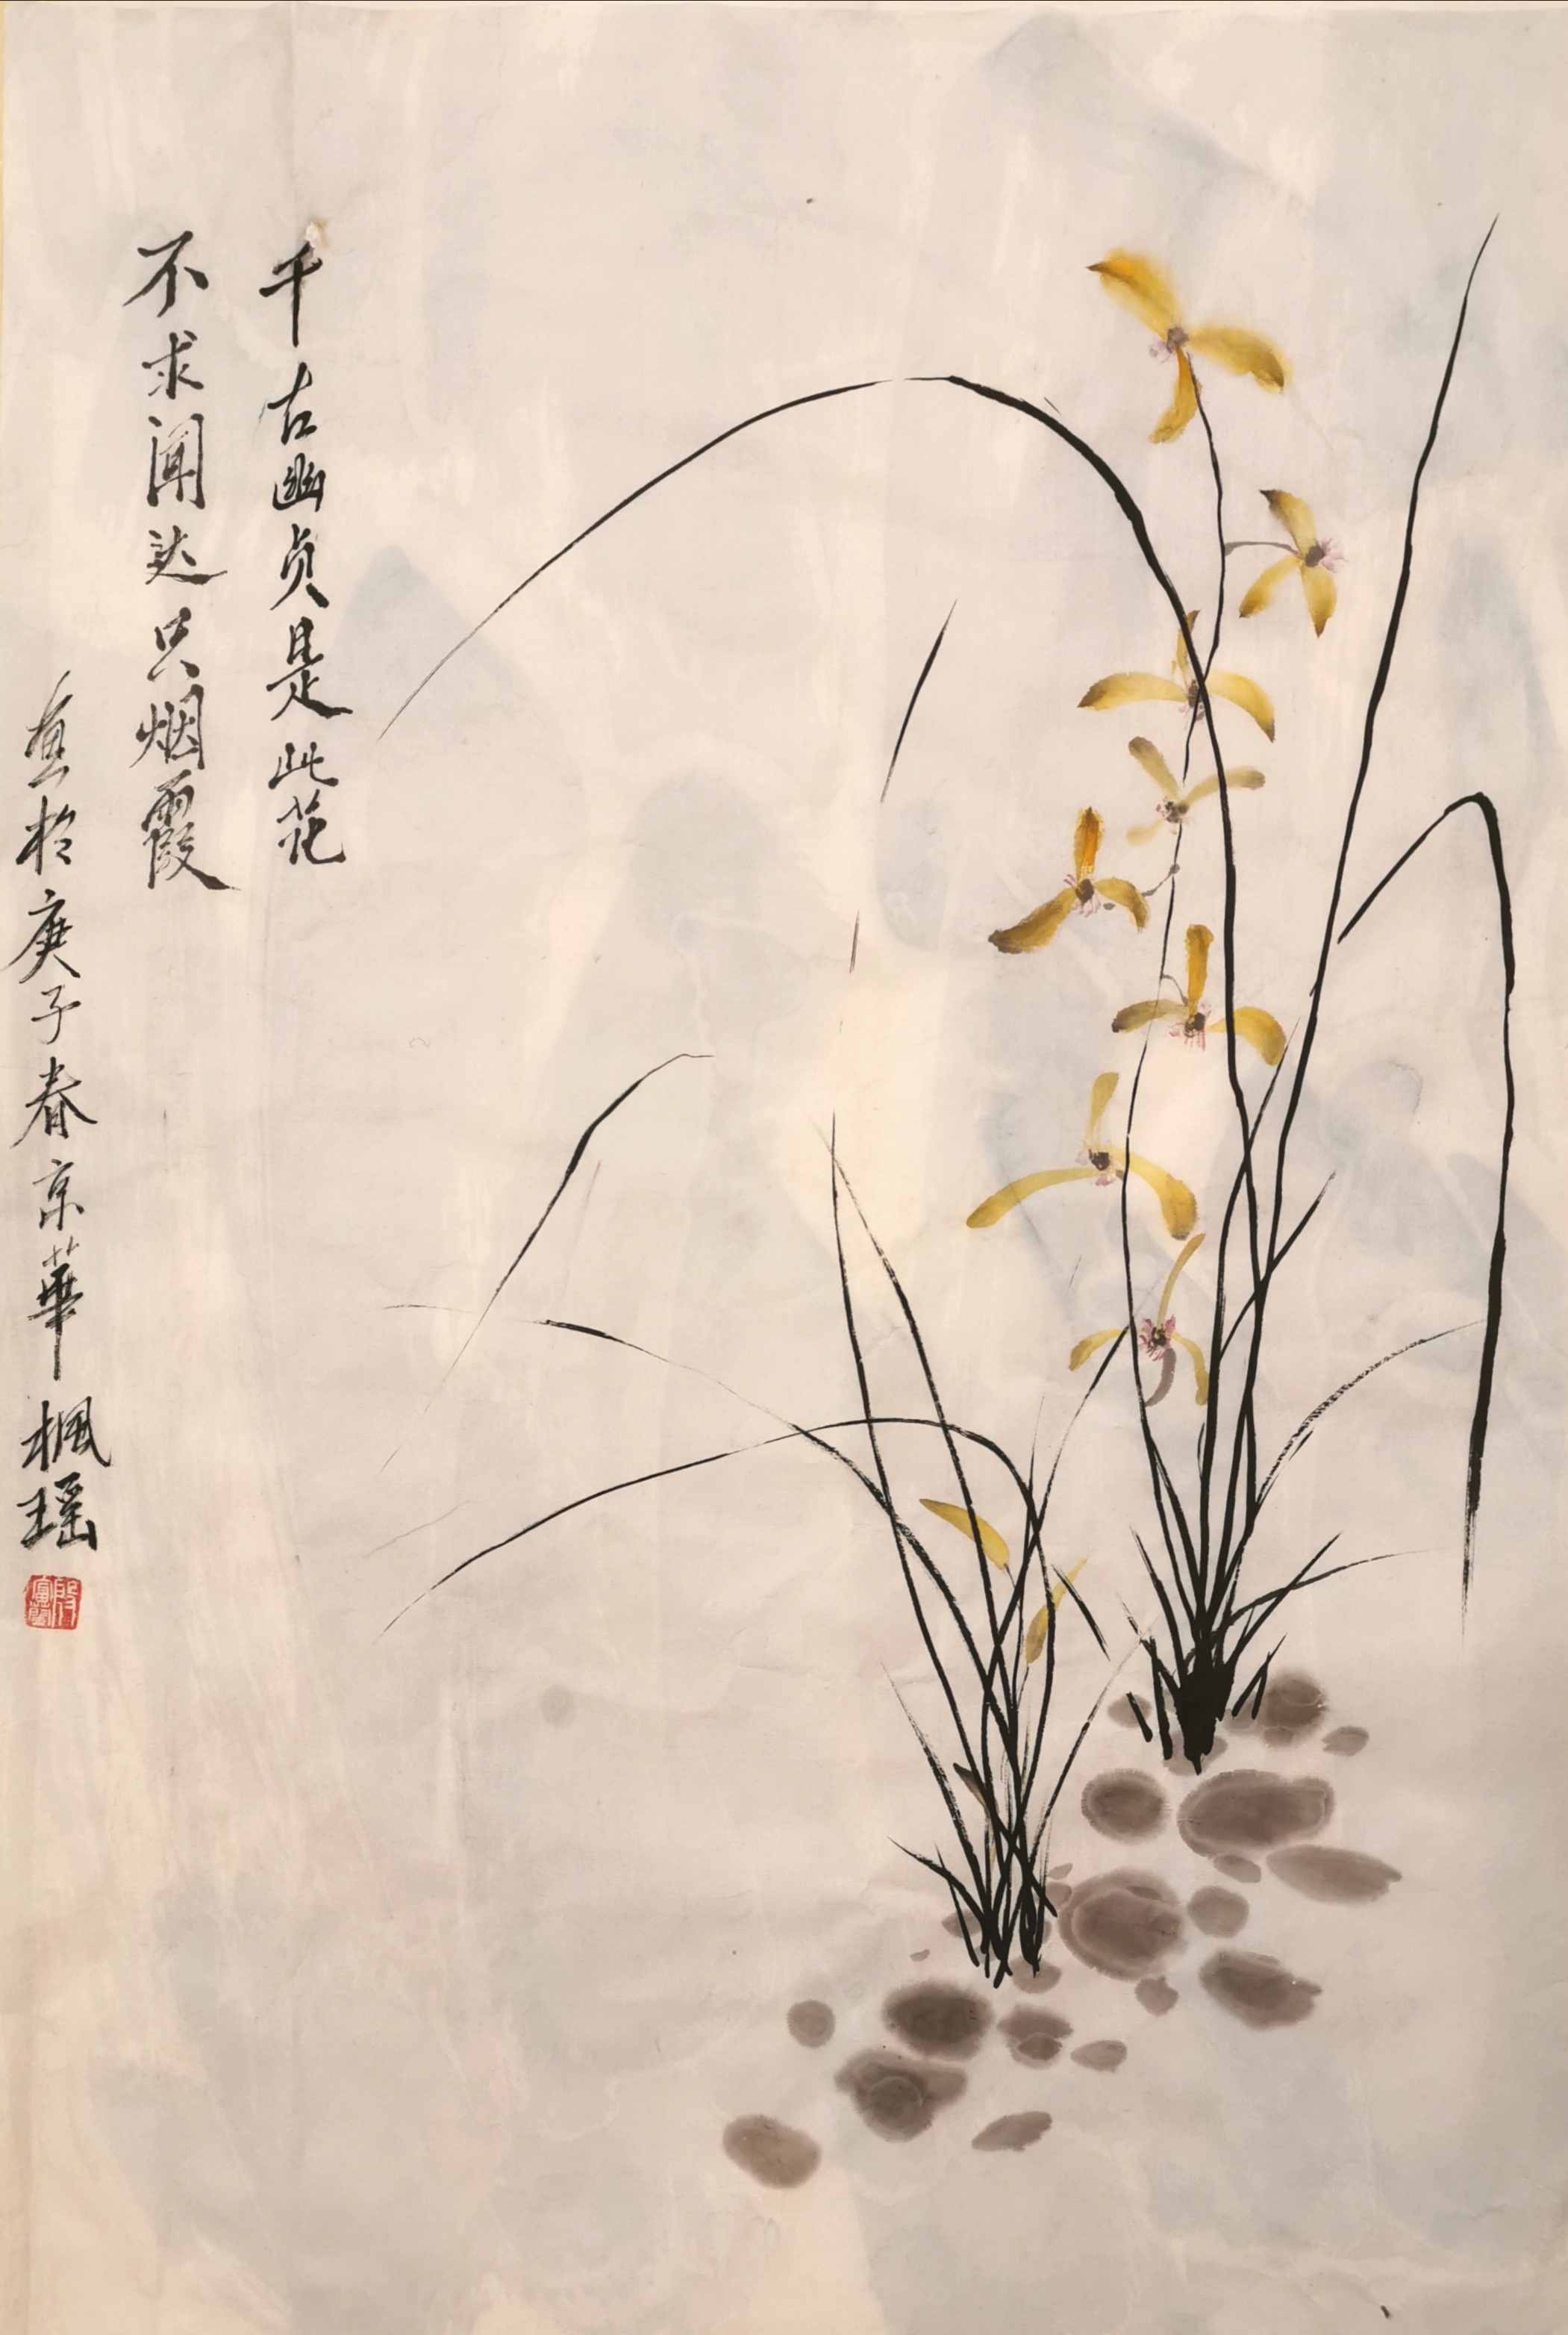 千古幽贞是此花
不求闻达只烟霞
画於庚子春京華
枫瑶